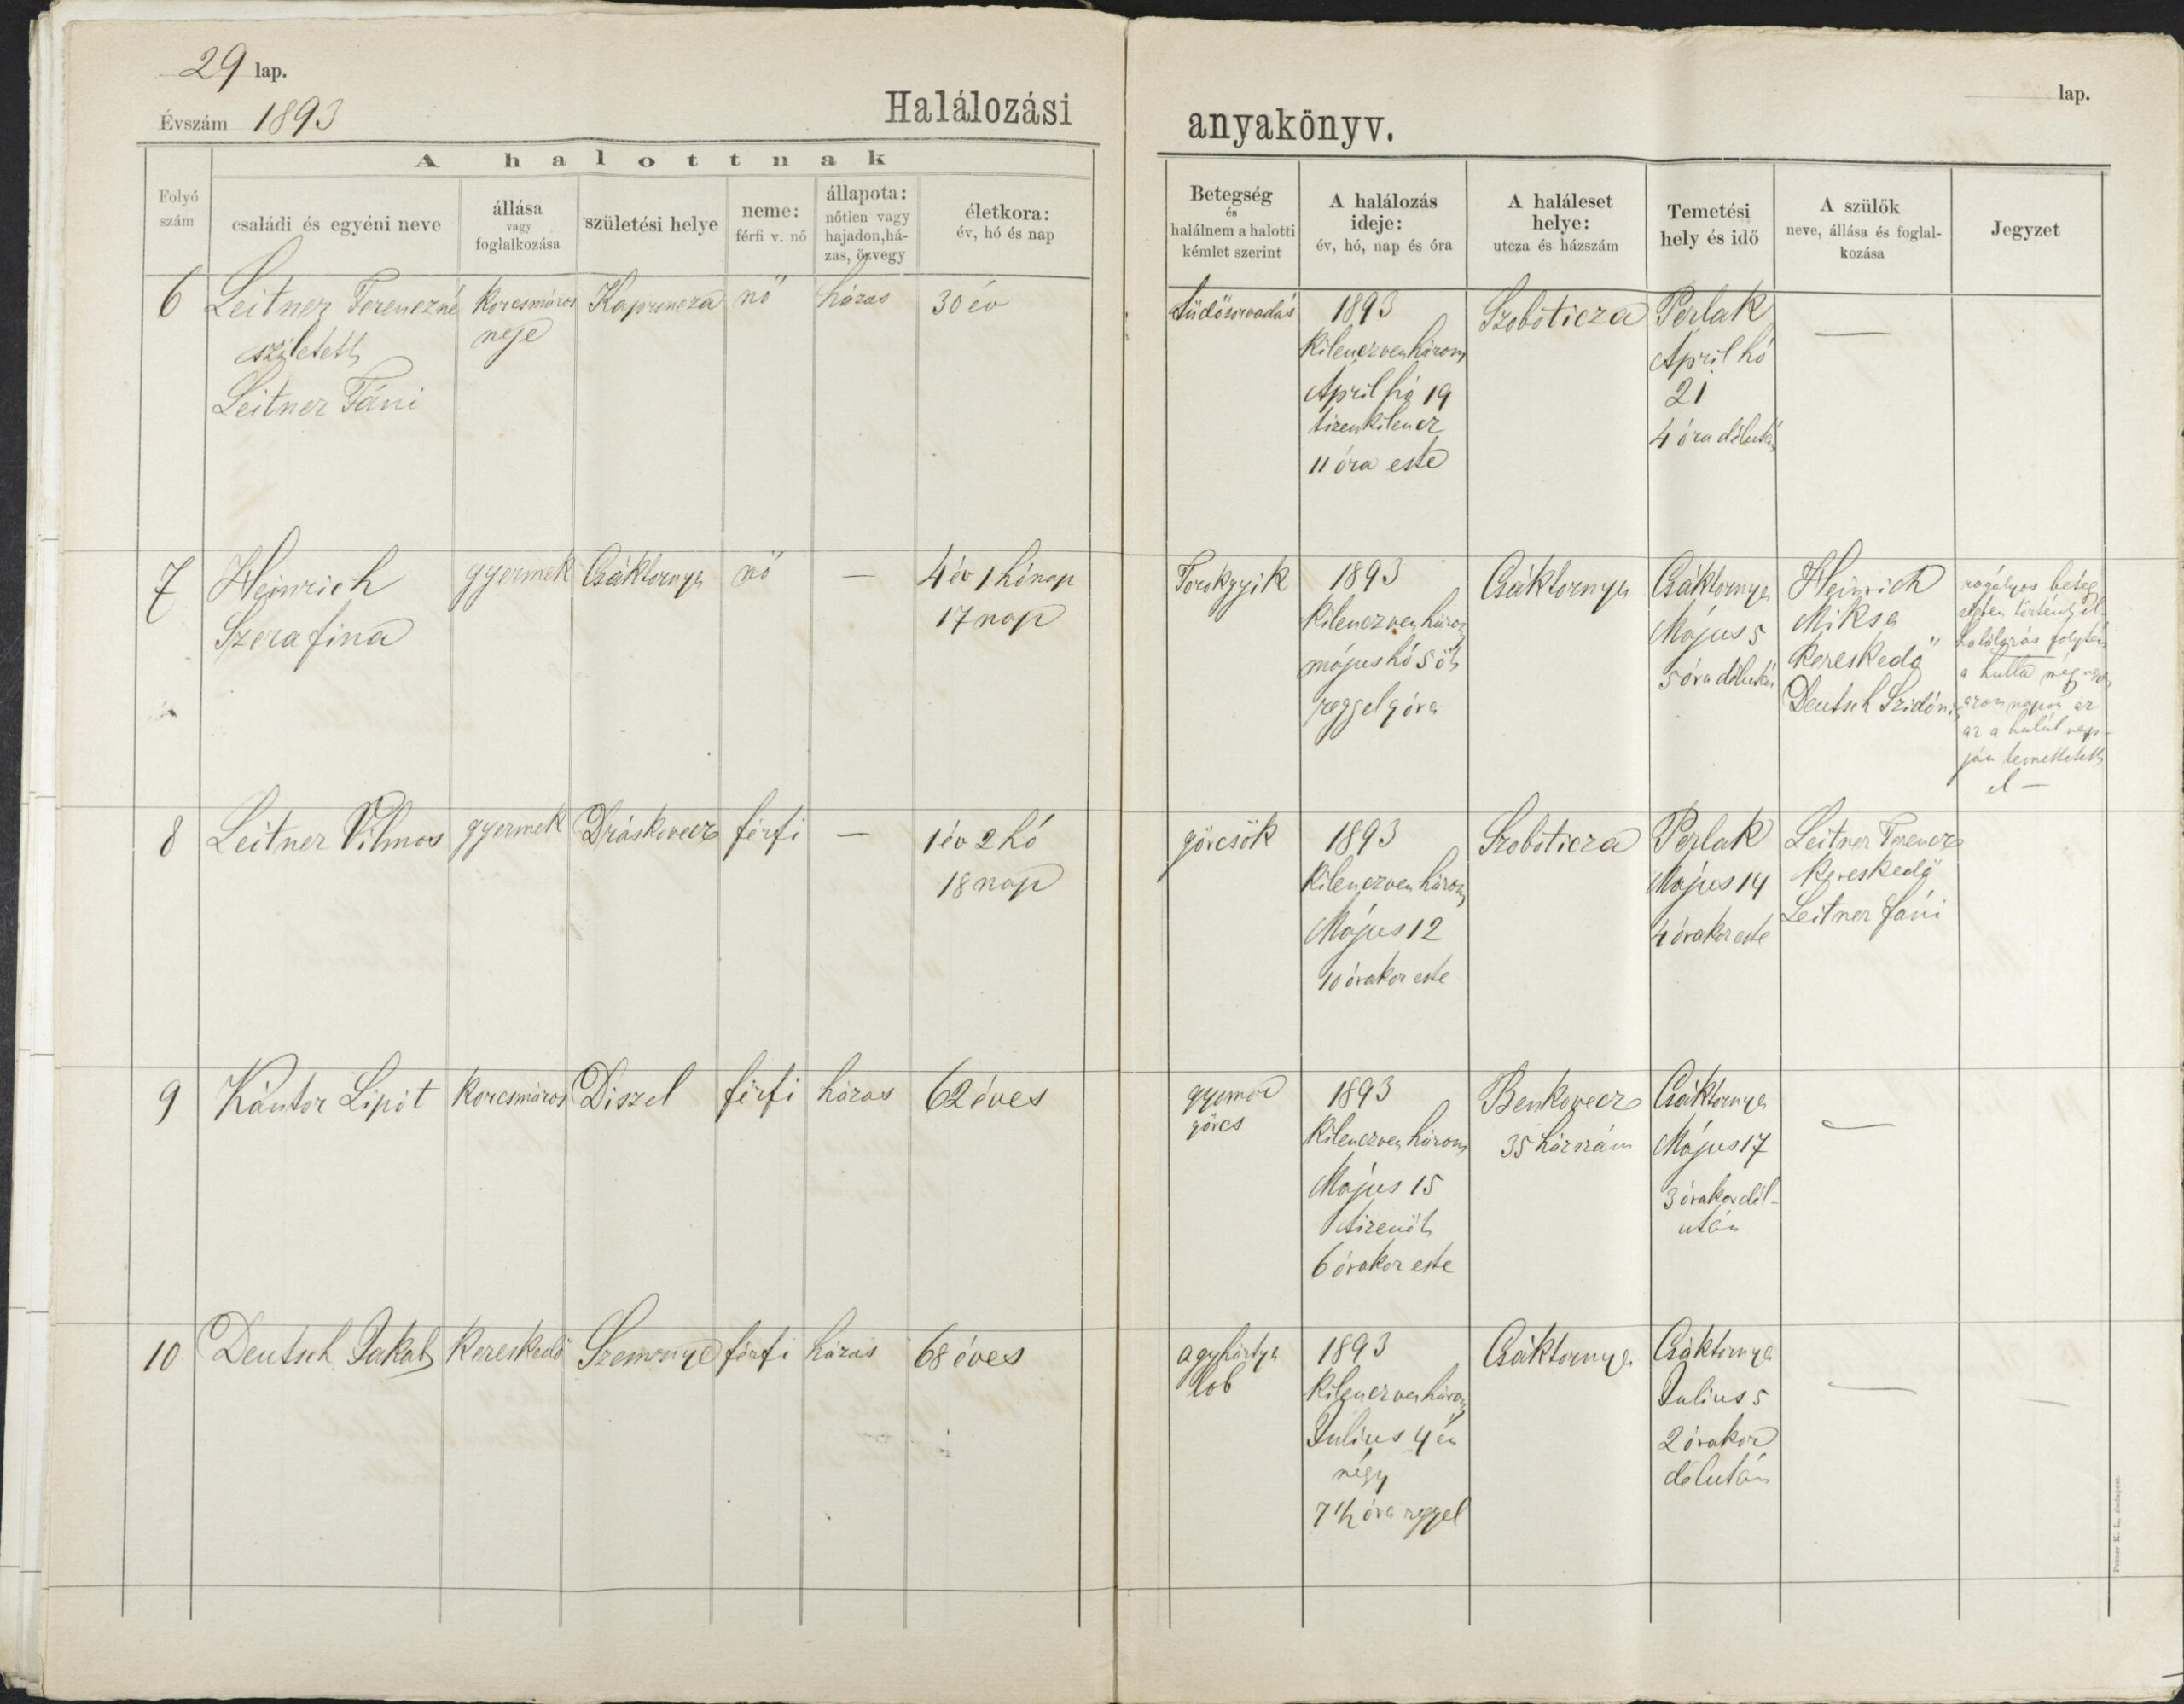 29 lap.
Évszám 1893
Halálozási
A halottnak
Folyó
szám
családi és egyéni neve
állása
vagy
foglalkozása
születési helye
neme:
férfi v. nő
állapota:
nőtlen vagy
hajadon, há-
zas, özvegy
életkora:
év, hó és nap
6 Leitner Ferenczné korcsmáros Kaproncza nő házas 30 év
született neje
Leitner Fáni
7 Heinrich gyermek Csáktornya nő — 4 év 1 hónap
Szerafina 17 nap
8 Leitner Vilmos gyermek Dráskovecz férfi — 1 év 2 hó
18 nap
9 Kántor Lipót korcsmáros Diszel férfi házas 62 éves
10 Deutsch Jakab kereskedő Szemenye férfi házas 68 éves
lap.
anyakönyv.
Betegség
és
halálnem a halotti
kémlet szerint
A halálozás
ideje:
év, hó, nap és óra
A haláleset
helye:
utcza és házszám
Temetési
hely és idő
A szülők
neve, állása és foglal-
kozása
Jegyzet
tüdősorvadás 1893 Szoboticza Perlak —
kilenczvenhárom April hó
April hó 19 21
tizenkilencz 4 óra délután
11 óra este
Torokgyik 1893 Csáktornya Csáktornya Heinrich
kilenczvenhárom Május 5 Miksa
május hó 5 öt 5 óra délután kereskedő
reggel 9 óra Deutsch Szidónia
ragályos beteg
ségben történt el
halálozás folytán
a hulla még
azon napon az
az a halál nap-
ján temettetett
el —
görcsök 1893 Szoboticza Perlak Leitner Ferencz
kilenczvenhárom Május 14 kereskedő
Május 12 4 órakor este Leitner Fáni
10 órakor este
gyomor 1893 Benkovecz Csáktornya —
görcs kilenczvenhárom 35 házszám Május 17
Május 15 3 órakor dél-
tizenöt után
6 órakor este
agyhártya 1893 Csáktornya Csáktornya — —
lob kilenczvenhárom Julius 5
Julius 4 én 2 órakor
négy délután
7 1/2 óra reggel
Posner K. L., Budapest.